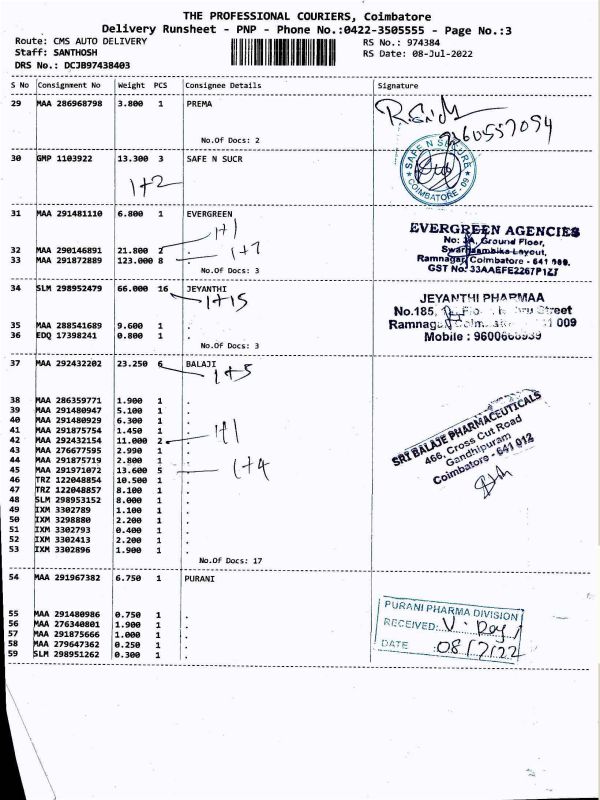 THE PROFESSIONAL COURIERS, Coimbatore
Delivery Runsheet - PNP - Phone No.:0422-3505555 - Page No.:3
Route: CMS AUTO DELIVERY RS No.: 974384
Staff: SANTHOSH RS Date: 08-Jul-2022
DRS No.: DCJB97438403
S No Consignment No Weight PCS Consignee Details Signature
29 MAA 286968798 3.800 1 PREMA
9360557094
No.Of Docs: 2
30 GMP 1103922 13.300 3 SAFE N SUCR
SAFE N SECURE
COIMBATORE - 09
1+2
31 MAA 291481110 6.800 1 EVERGREEN
1+1
EVERGREEN AGENCIES
No: 3A, Ground Floor,
Swarnambika Layout,
Ramnagar, Coimbatore - 641 009.
GST No: 33AAEFE2267P1Z1
32 MAA 290146891 21.800 2 .
33 MAA 291872889 123.000 8 . 1+7
No.Of Docs: 3
34 SLM 298952479 66.000 16 JEYANTHI
1+15
JEYANTHI PHARMAA
No.185, Street
Ramnagar, 009
Mobile : 9600660939
35 MAA 288541689 9.600 1 .
36 EDQ 17398241 0.800 1 .
No.Of Docs: 3
37 MAA 292432202 23.250 6 BALAJI
1+5
38 MAA 286359771 1.900 1 .
39 MAA 291480947 5.100 1 .
40 MAA 291480929 6.300 1 .
41 MAA 291875754 1.450 1 .
42 MAA 292432154 11.000 2 . 1+1
43 MAA 276677595 2.990 1 .
44 MAA 291875719 2.800 1 .
45 MAA 291971072 13.600 5 . 1+4
46 TRZ 122048854 10.500 1 .
47 TRZ 122048857 8.100 1 .
48 SLM 298953152 8.000 1 .
49 IXM 3302789 1.100 1 .
50 IXM 3298880 2.200 1 .
51 IXM 3302793 0.400 1 .
52 IXM 3302413 2.200 1 .
53 IXM 3302896 1.900 1 .
SRI BALAJE PHARMACEUTICALS
466, Cross Cut Road
Gandhipuram
Coimbatore - 641 012
No.Of Docs: 17
54 MAA 291967382 6.750 1 PURANI
PURANI PHARMA DIVISION
RECEIVED:
DATE 08/7/22
55 MAA 291480986 0.750 1 .
56 MAA 276340801 1.900 1 .
57 MAA 291875666 1.000 1 .
58 MAA 279647362 0.250 1 .
59 SLM 298951262 0.300 1 .